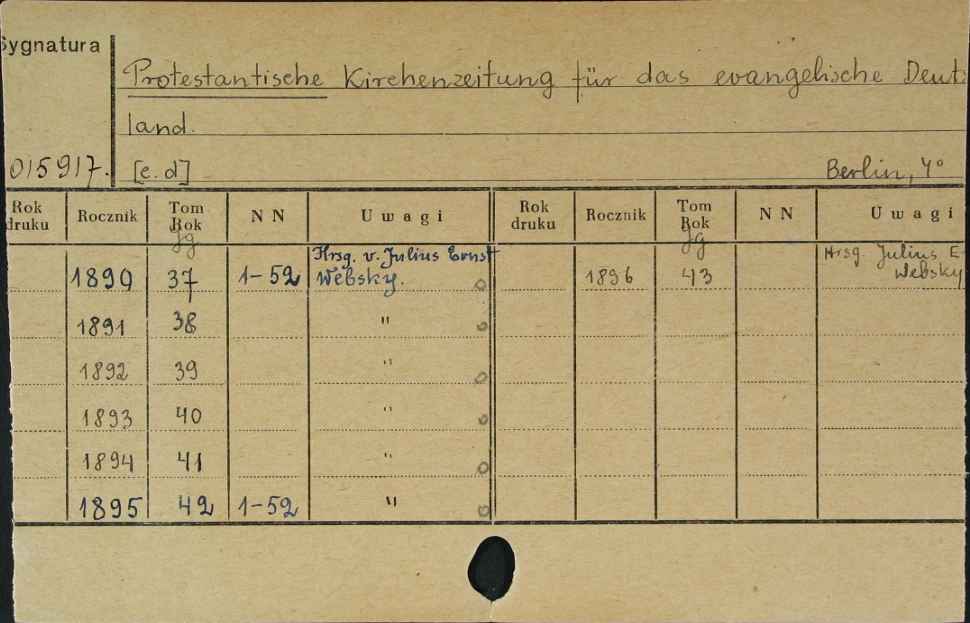 Sygnatura
Protestantische Kirchenzeitung für das evangelische Deut
land.
015917. [e.d] Berlin, 4°
Rok druku Rocznik Tom Rok Jg N N Uwagi Rok druku Rocznik Tom Rok Jg N N Uwagi
1890 37 1-52 Hrsg. v. Julius Ernst Websky. 1896 43 Hrsg. Julius E Websky
1891 38 "
1892 39 "
1893 40 "
1894 41 "
1895 42 1-52 "